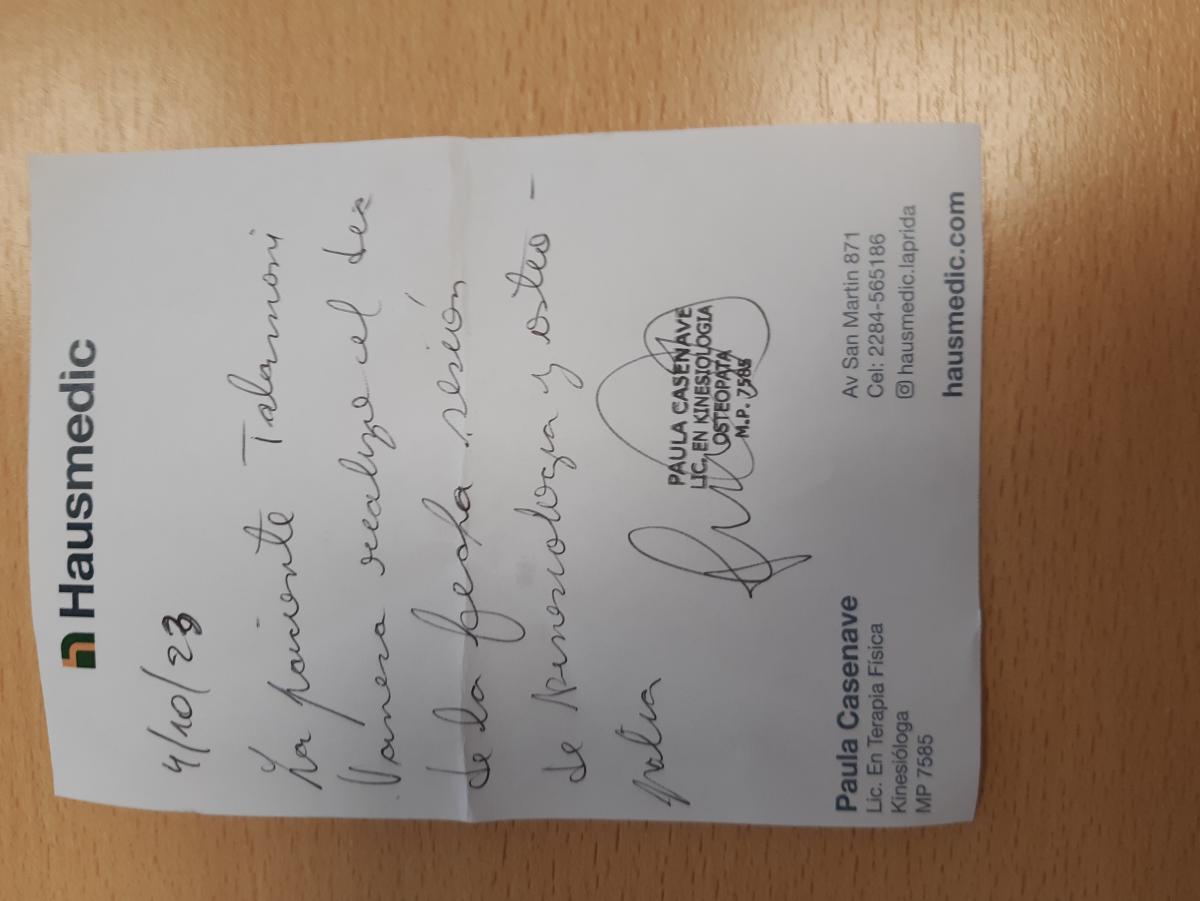 Hausmedic
4/10/23
La paciente Talamoni
Vanesa realizo el día
de la fecha sesión
de kinesiologia y osteo-
patia
PAULA CASENAVE
LIC. EN KINESIOLOGIA
OSTEOPATA
M.P. 7585
Paula Casenave
Lic. En Terapia Física
Kinesióloga
MP 7585
Av San Martin 871
Cel: 2284-565186
hausmedic.laprida
hausmedic.com